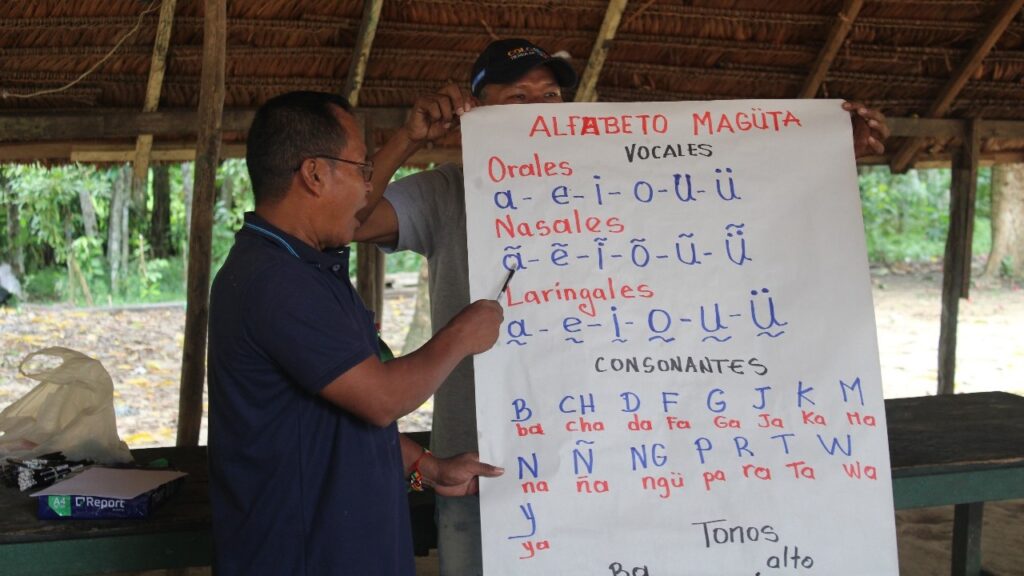 COLOMBIA
ALFABETO MAGÜTA
VOCALES
Orales
a - e - i - o - u - ü
Nasales
ã - ẽ - ĩ - õ - ũ - ü̃
Laringales
a̰ - ḛ - ḭ - o̰ - ṵ - ṵ̈
CONSONANTES
B CH D F G J K M
ba cha da Fa Ga Ja Ka Ma
N Ñ NG P R T W
na ña ngü pa ra Ta Wa
y
ya
Tonos
alto
Ba
A4 Report